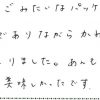 ごみたいなパッケ
でありながらかれ
りました。あんも
美味しかったです.